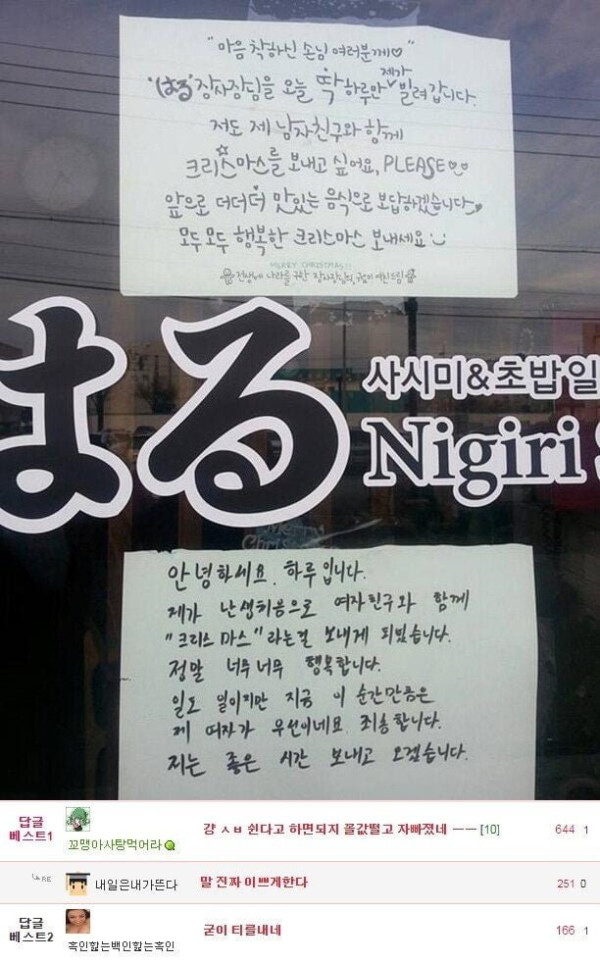 "마음 착하신 손님 여러분께♡"
'はる' 장사장님을 오늘 딱 하루만 제가 빌려갑니다.
저도 제 남자친구와 함께
크리스마스를 보내고 싶어요, PLEASE♡♡
앞으로 더더더 맛있는 음식으로 보답하겠습니다
모두모두 행복한 크리스마스 보내세요
MERRY CHRISTMAS!!
전생에 나라를 구한 장사장님의, 여친드림
はる
사시미&초밥일
Nigiri
Merry
안녕하세요. 하루입니다.
제가 난생처음으로 여자친구와 함께
"크리스마스"라는걸 보내게 되었습니다.
정말 너무너무 행복합니다.
일도 일이지만 지금 이 순간만큼은
제 여자가 우선이네요. 죄송합니다.
저는 좋은 시간 보내고 오겠습니다.
답글 베스트1
꼬맹아사탕먹어라
걍 ㅅㅂ 쉰다고 하면되지 꼴값떨고 자빠졌네 ㅡㅡ [10]
644 1
RE
내일은내가뜬다
말 진짜 이쁘게한다
251 0
답글 베스트2
흑인핥는백인핥는흑인
굳이 티를내네
166 1